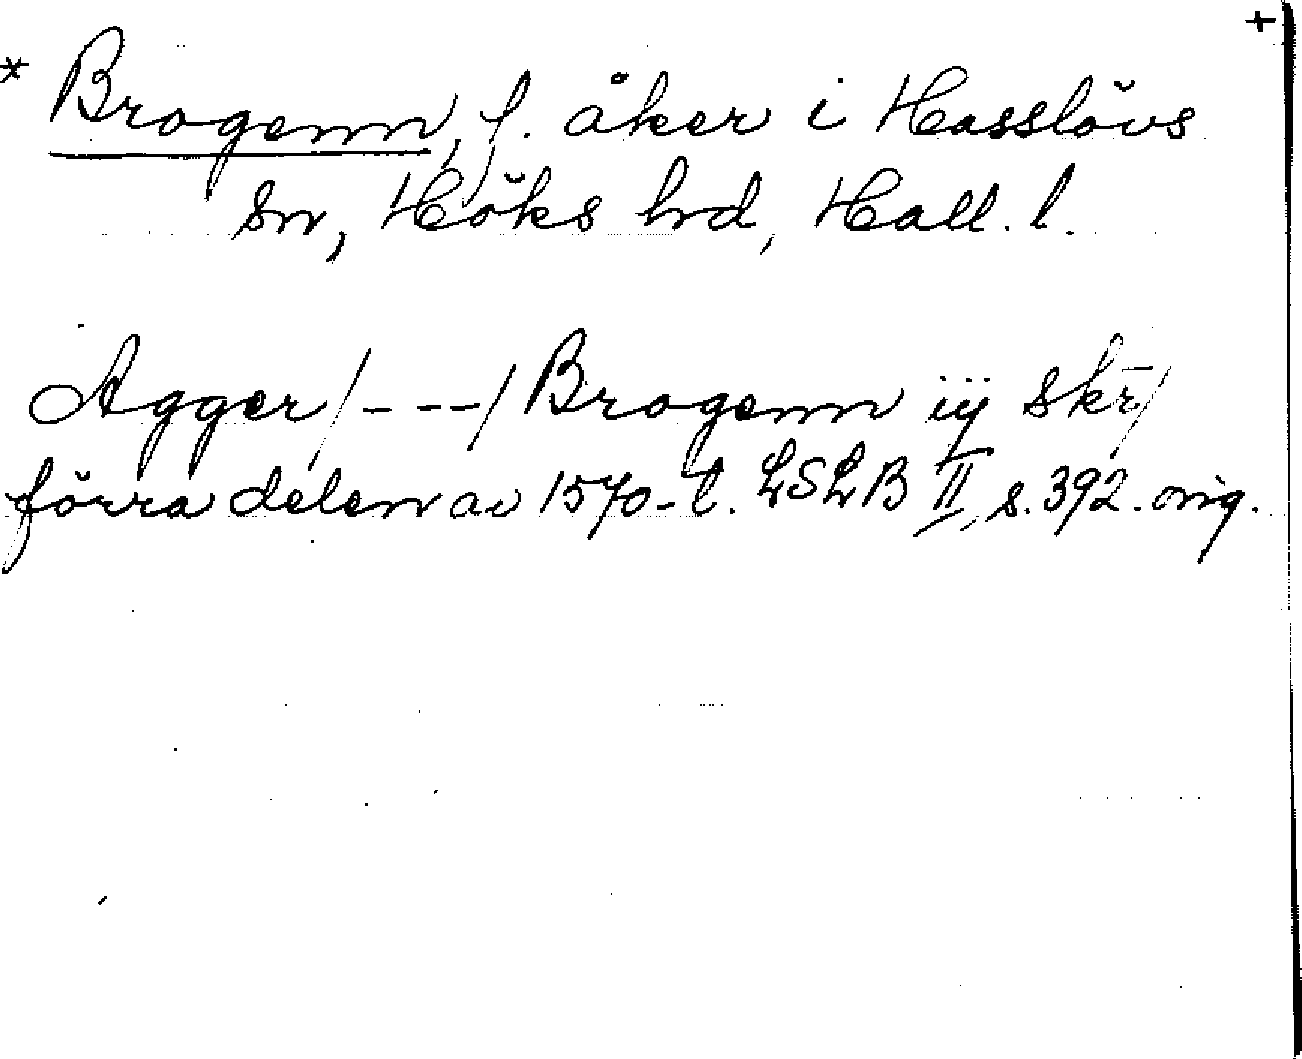 +
* Brogenn, f. åker i Hasslövs
sn, Höks hd, Hall. l.
Agger/---/Brogenn iij skr̄/
förra delen av 1570-t. LSLB II, s. 392. orig.